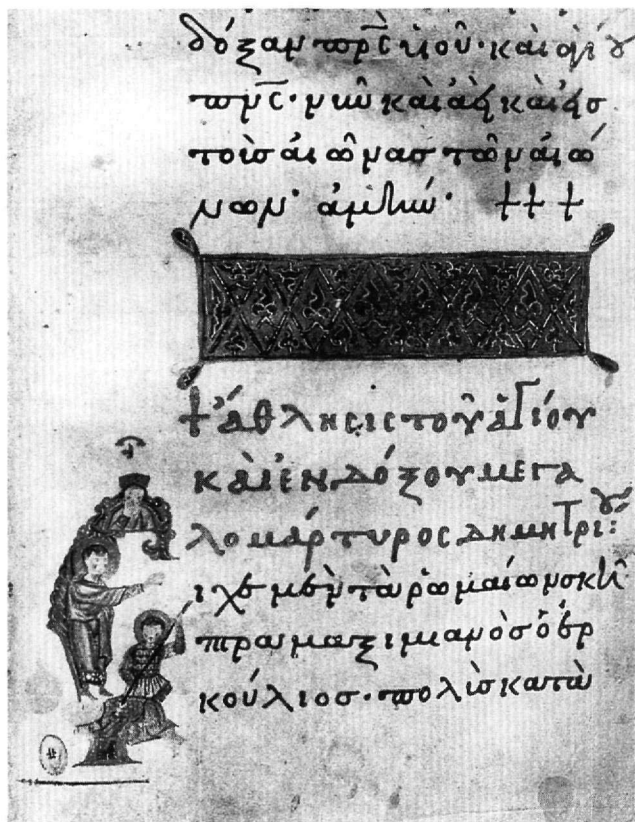 δόξαν πρ̅ς υἱοῦ· καὶ ἁγίου
πν̅ς· νῦν καὶ ἀεὶ καὶ εἰς
τοὺς αἰῶνας τῶν αἰώ
νων· ἀμήν· +++
+ ἄθλησις τοῦ ἁγίου
καὶ ἐνδόξου μεγα
λομάρτυρος δημητρίου:
ιχε μὲν τὰ ῥωμαίων σκῆ
πτρα μαξιμιανὸς ὁ ἑρ
κούλιος· πολὺς κατὰ